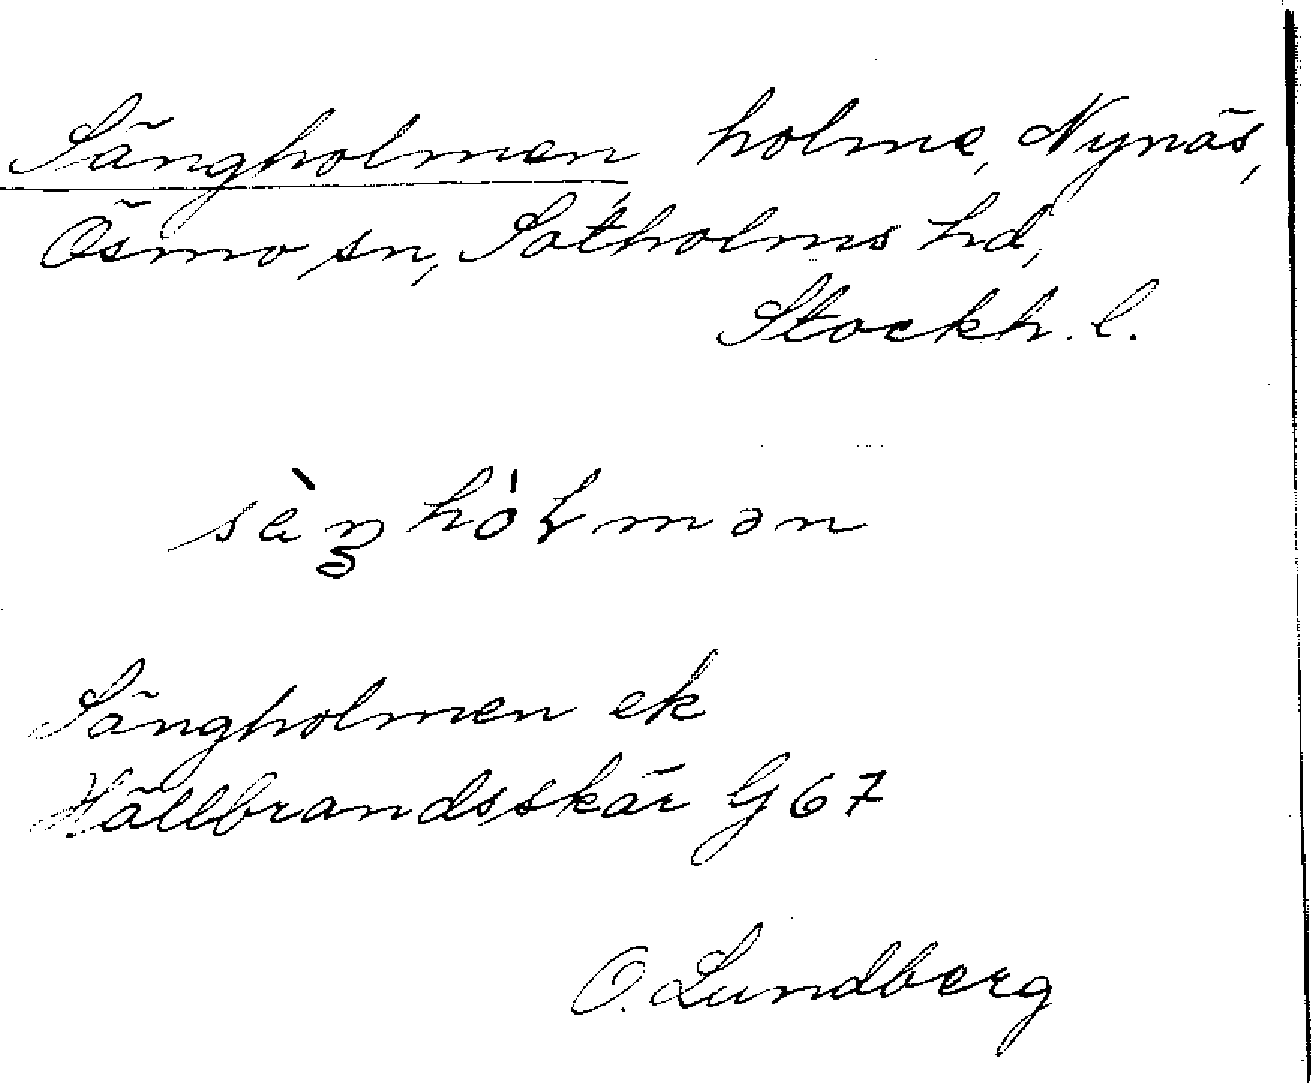 Sängholmen holme, Nynäs,
Ösmo sn, Sotholms hd,
Stockh. l.
sèŋhólmən
Sängholmen ek
Hällbrandsskär G 67
O. Lundberg